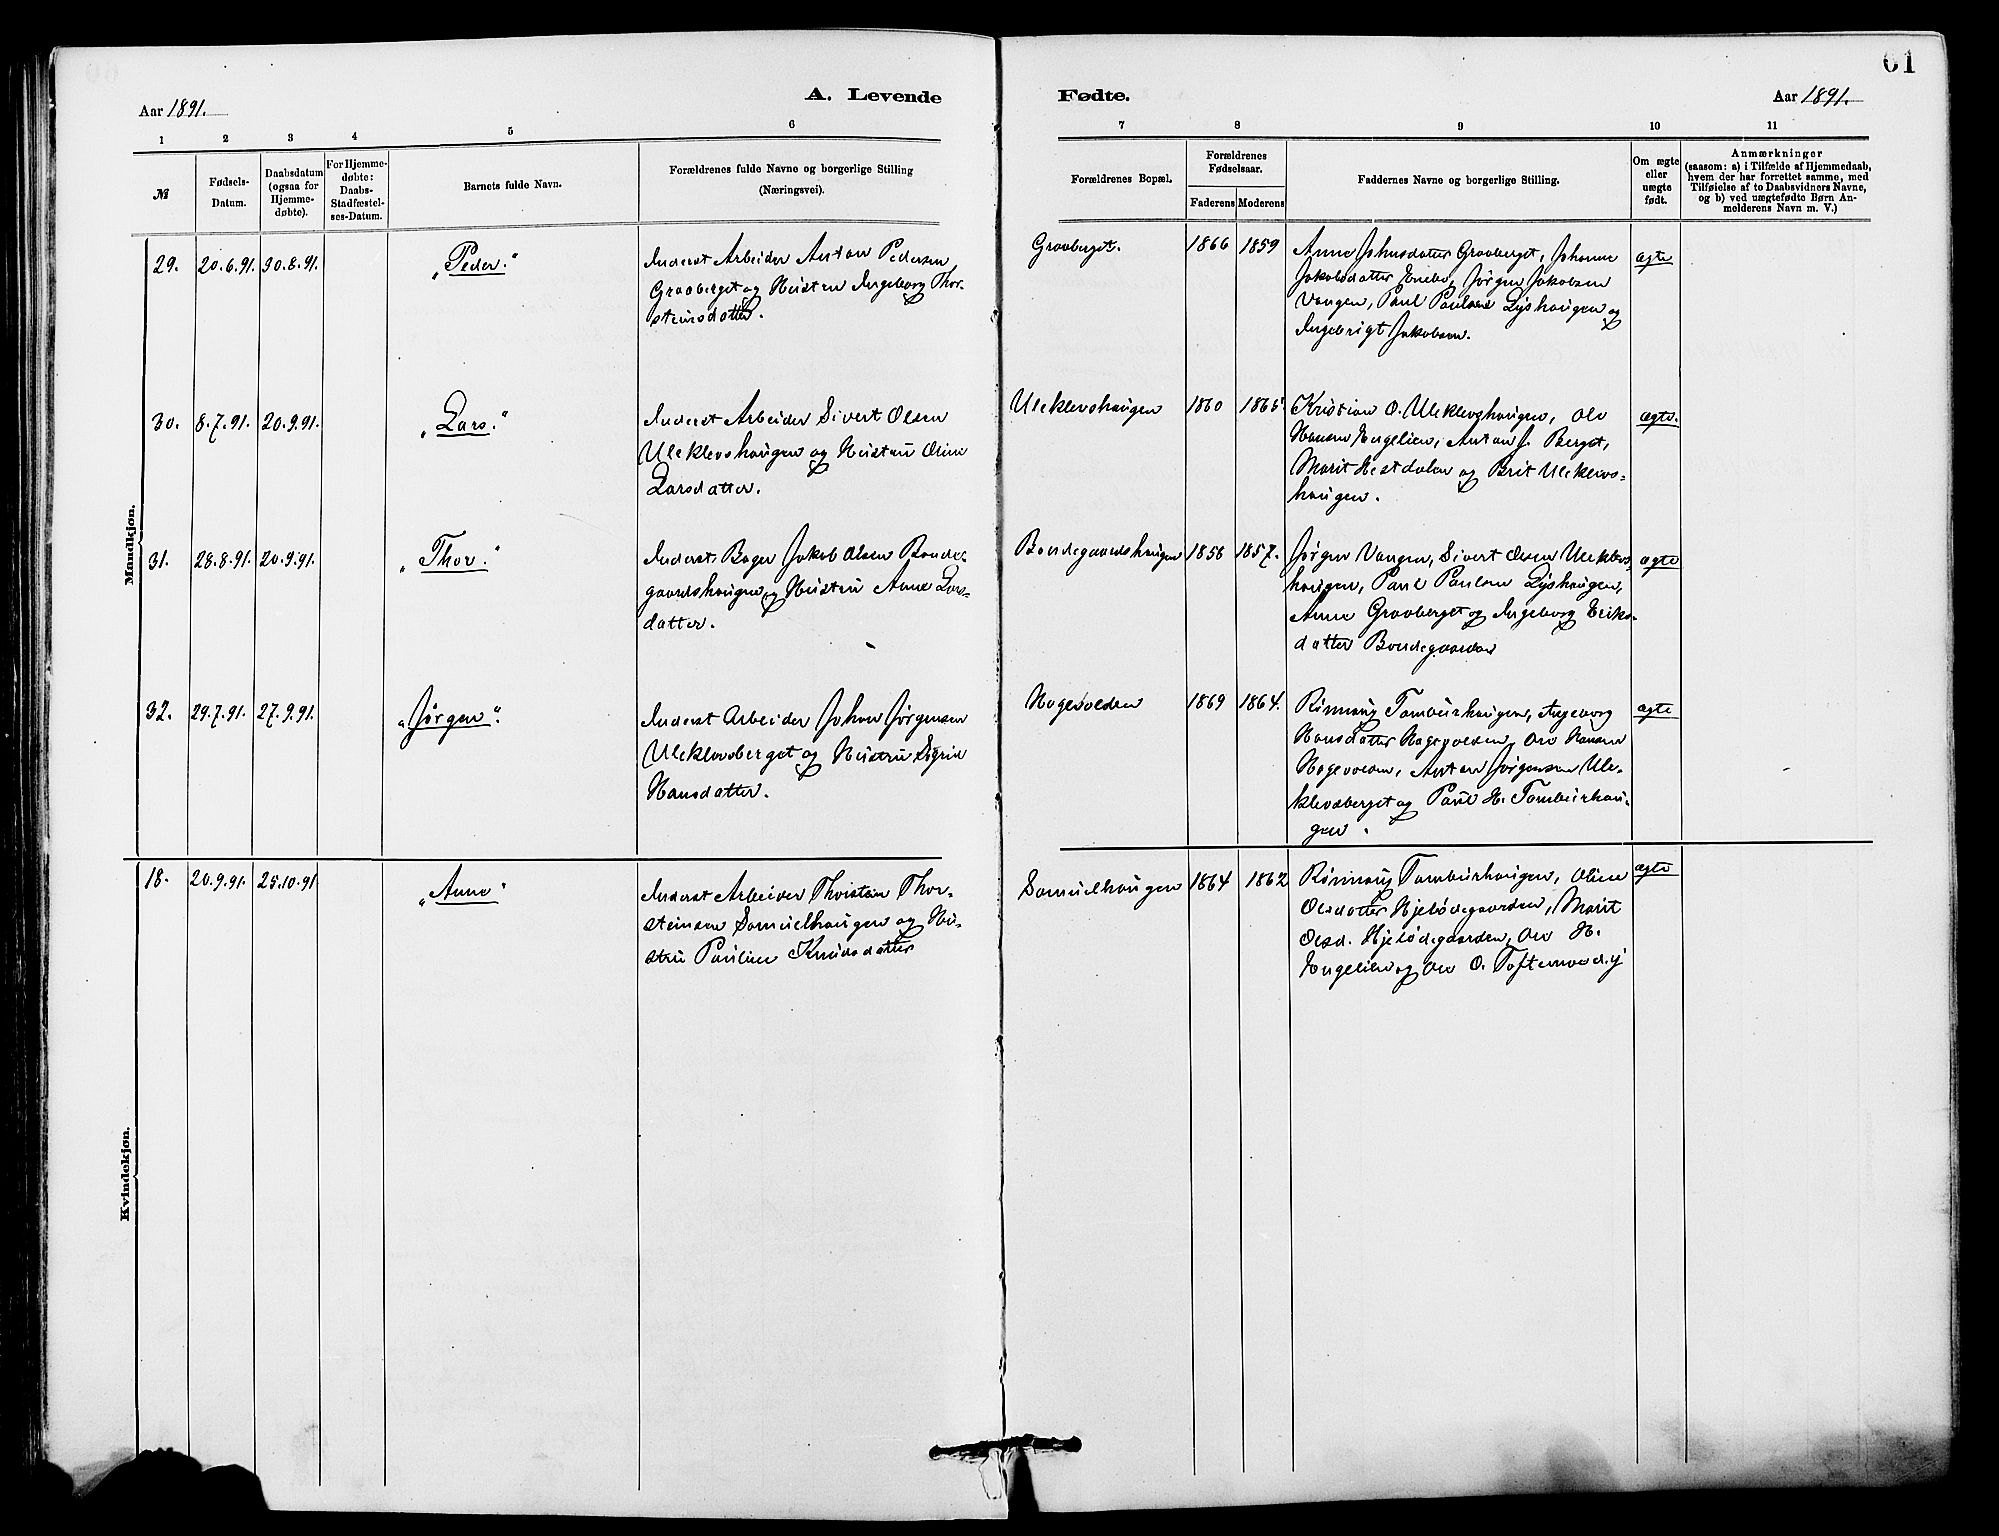 61
Aar 1891.
A. Levende
Fødte.
Aar 1891.
1 2 3 4 5 6 7 8 9 10 11
№
Fødsels-
Datum.
Daabsdatum
(ogsaa for
Hjemme-
døbte).
For Hjemme-
døbte:
Daabs-
Stadfæstel-
ses-Datum.
Barnets fulde Navn.
Forældrenes fulde Navne og borgerlige Stilling
(Næringsvei).
Forældrenes Bopæl.
Forældrenes
Fødselsaar.
Faderens Moderens
Faddernes Navne og borgerlige Stilling.
Om ægte
eller
uægte
født.
Anmærkninger
(saasom: a) i Tilfælde af Hjemmedaab,
hvem der har forrettet samme, med
Tilføielse af to Daabsvidners Navne,
og b) ved uægtefødte Børn An-
melderens Navn m. V.)
Mandkjøn.
29. 20.6.91. 30.8.91. „Peder."
Inderst Arbeider Anton Pedersen
Graaberget og Hustru Ingeborg Thor-
steinsdatter.
Graaberget. 1866 1859
Anne Johnsdatter Graaberget, Johanne
Jakobsdatter Enebo, Jørgen Jakobsen
Vangen, Paul Paulsen Lyshaugen og
Ingebrigt Jakobsen.
ægte
30. 8.7.91. 20.9.91. „Lars."
Inderst Arbeider Sivert Olsen
Uleklevshaugen og Hustru Oline
Larsdatter.
Uleklevshaugen 1860 1865
Kristian O. Uleklevshaugen, Ole
Hansen Engelien, Anton J. Berget,
Marit Hestdalen og Brit Uleklevs-
haugen.
ægte.
31. 28.8.91. 20.9.91. „Thor."
Inderst Bager Jakob Olsen Bonde-
gaardshaugen og Hustru Anne Lars-
datter.
Bondegaardshaugen 1856 1857.
Jørgen Vangen, Sivert Olsen Uleklevs-
haugen, Paul Paulsen Lyshaugen,
Anne Graaberget og Ingeborg Eriks-
datter Bondegaarden
ægte
32. 29.7.91. 27.9.91. „Jørgen".
Inderst Arbeider Johan Jørgensen
Uleklevsberget og Hustru Sigrid
Hansdatter.
Hagevolden 1869 1864.
Rønnaug Tamburhaugen, Ingeborg
Hansdatter Hagevolden, Ole Hansen
Hagevolden, Anton Jørgensen Ule-
klevsberget og Paul H. Tamburhau-
gen.
ægte
Kvindekjøn.
18. 20.9.91. 25.10.91 „Anne"
Inderst Arbeider Thorstein Thor-
steinsen Samuelhaugen og Hu-
stru Pauline Knudsdatter
Samuelhaugen 1864 1862
Rønnaug Tamburhaugen, Oline
Olsdatter Hjelødegaarden, Marit
Olsd. Hjelødegaarden, Ole H.
Engelien og Ole O.
ægte